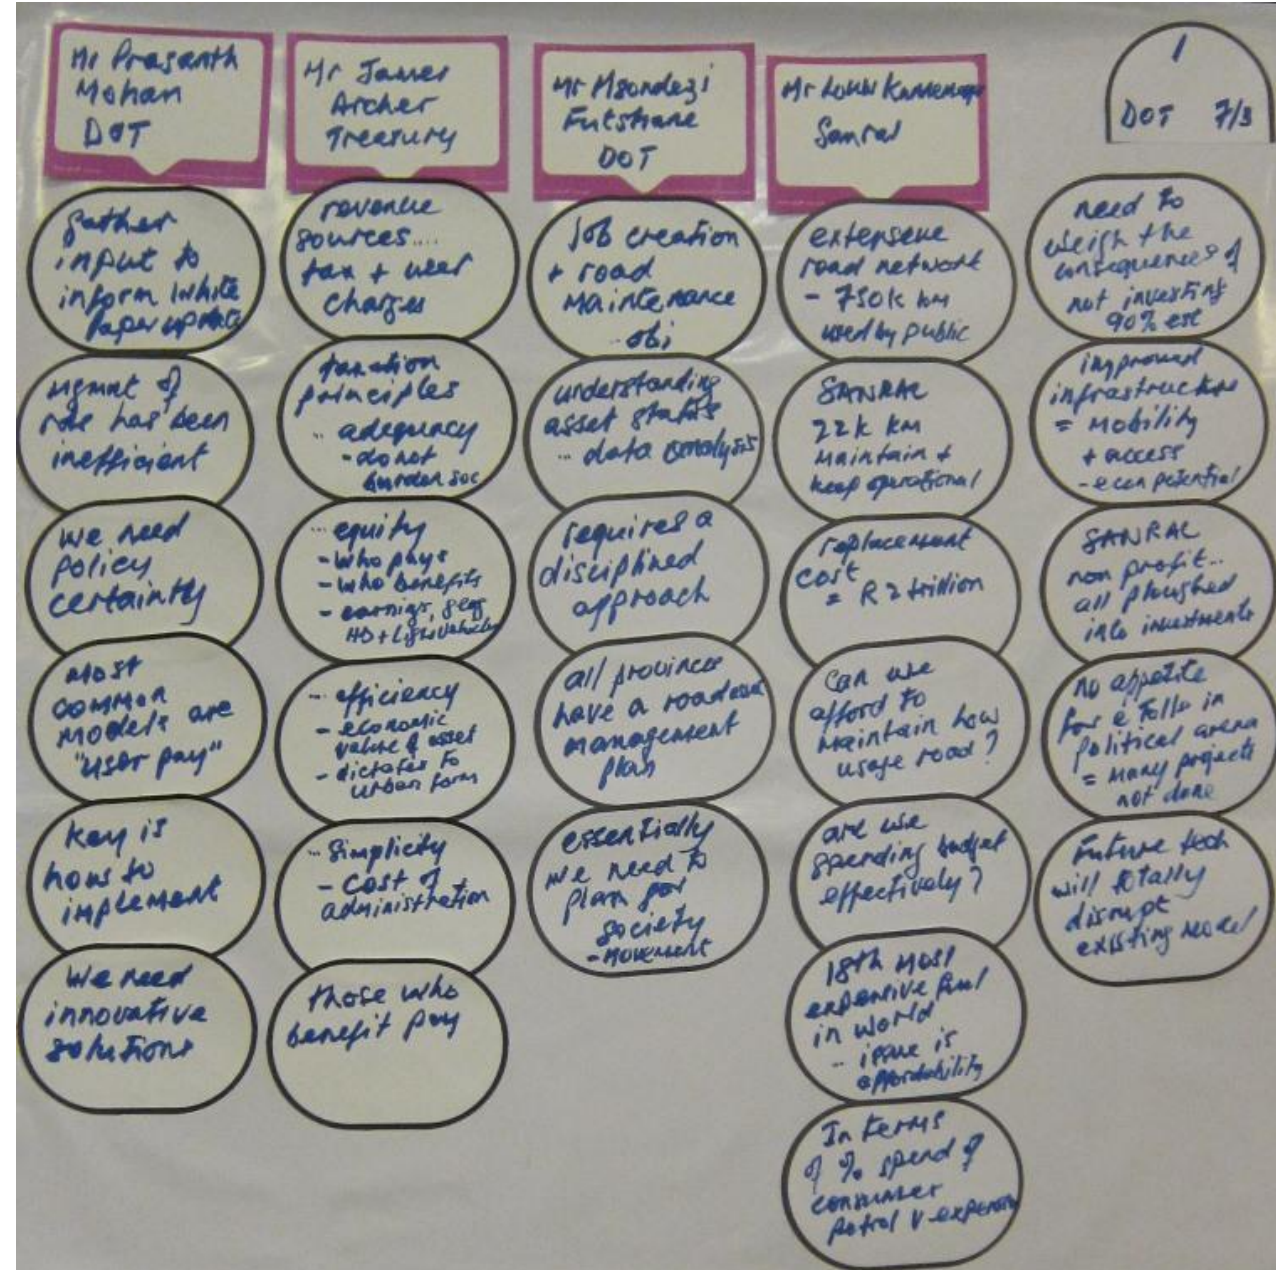 Mr Prasanth
Mohan
DOT
gather
input to
inform White
Paper update
mgmnt of
rds has been
inefficient
we need
policy
certainty
most
common
models are
"user pay"
key is
how to
implement
we need
innovative
solutions
Mr James
Archer
Treasury
revenue
sources....
tax + user
charges
taxation
principles
... adequacy
- do not
burden soc
... equity
- who pays
- who benefits
- earnings, geog
HD + light vehicles
... efficiency
- economic
value of asset
- dictates to
urban form
... simplicity
- cost of
administration
those who
benefit pay
Mr Msondezi
Futshane
DOT
job creation
+ road
maintenance
.. obj
understanding
asset status
... data analysis
requires a
disciplined
approach
all provinces
have a road
management
plan
essentially
we need to
plan for
society
- movement
Mr Louw
Sanral
extensive
road network
- 750k km
used by public
SANRAL
22k km
maintain +
keep operational
replacement
cost
= R 2 trillion
can we
afford to
maintain how
usage road?
are we
spending budget
effectively?
18th most
expensive fuel
in world
... issue is
affordability
In terms
of % spend of
consumer
petrol v-expensive
1
DOT 7/3
need to
weigh the
consequences of
not investing
90% est
improved
infrastructure
= mobility
+ access
- econ potential
SANRAL
non profit..
all ploughed
into investments
no appetite
for e Tolls in
political arena
= many projects
not done
future tech
will totally
disrupt
existing model